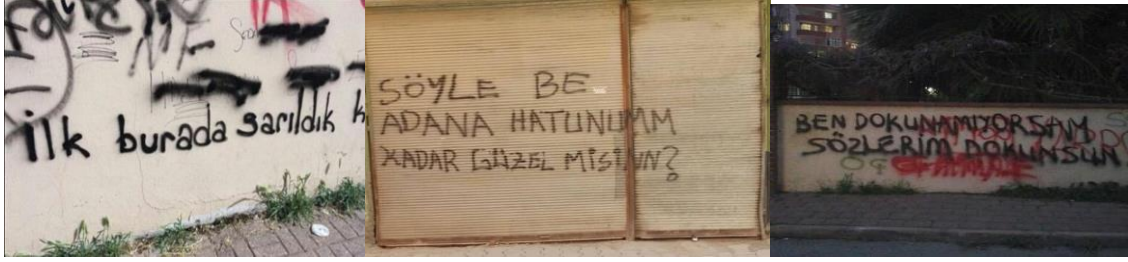 ilk burada sarıldık k
SÖYLE BE
ADANA HATUNUMM
KADAR GÜZEL MİSİİN?
BEN DOKUNAMIYORSAM
SÖZLERİM DOKUNSUN